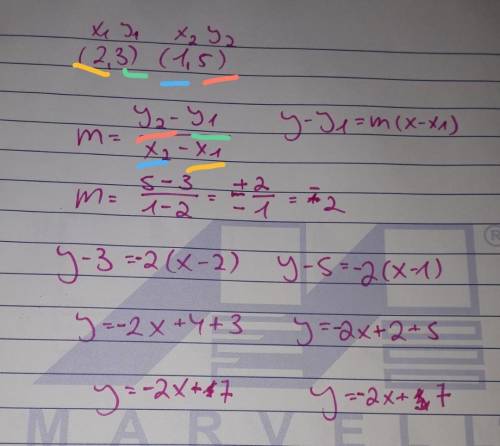 x1 y1 x2 y2
(2,3) (1,5)
m = y2 - y1 / x2 - x1 y - y1 = m(x - x1)
m = 5 - 3 / 1 - 2 = +2 / -1 = -2
y - 3 = -2(x - 2) y - 5 = -2(x - 1)
y = -2x + 4 + 3 y = -2x + 2 + 5
y = -2x + 7 y = -2x + 7
MARVELL